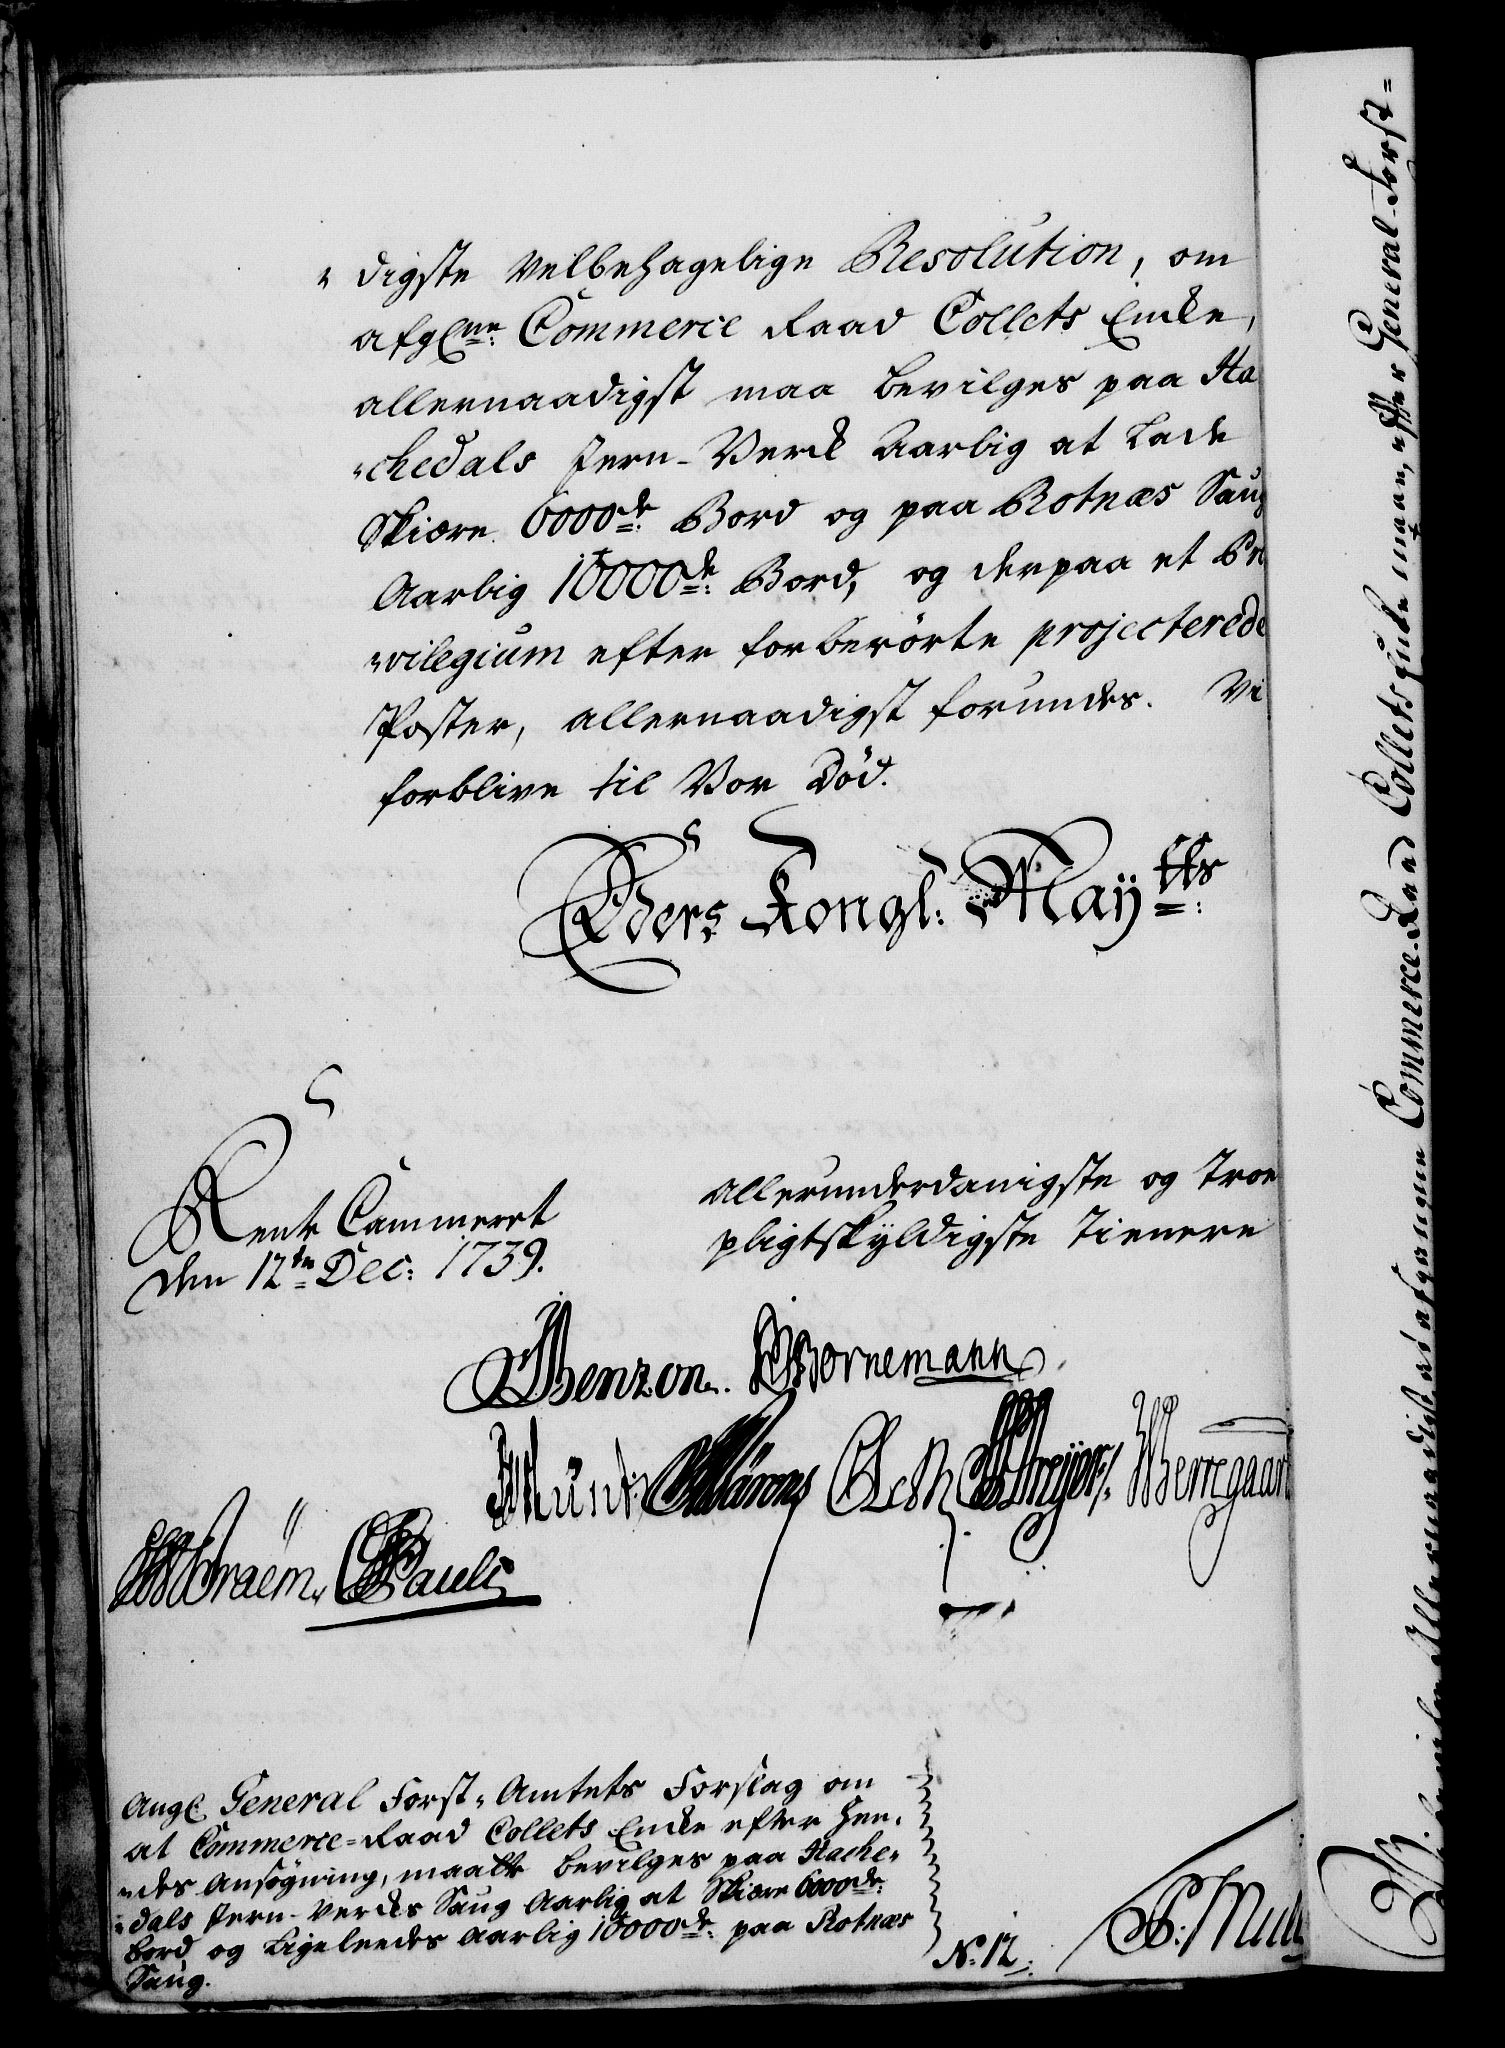 "digste Velbehagelige Resolution, om
afgl:ne Commerce Raad Collets Enke,
allernaadigst maa bevilges paa Ha
"chedals Jern-Verck Aarlig at Lade
Skiære 6000de Bord og paa Rotnæs Saug
Aarlig 10000de Bord, og derpaa et Pri
"vilegium efter forberörte projecterede
Poster, allernaadigst forundes. Vi
forblive til Vor Død.
Eders Kongl: Maÿtts:
Rente Cammeret
den 12te Dec: 1739.
allerunderdanigste og Troe
pligtskÿldigste Tienere
Benzon. Bornemann
Wraëm. Pauli
Angl General Forst-Amtets Forslag om
at Commerce-Raad Collets Enke efter Hen-
"des Ansøgning, maatte bevilges paa Hache-
"dals Jern-Vercks Saug Aarlig at Skiære 6000de
Bord og Ligeleedes Aarlig 10000de paa Rotnæs
Saug.
No: 12.
Allernaadigst at afgangne Commerce-Raad Collets Enke maae, efter General-Forst=